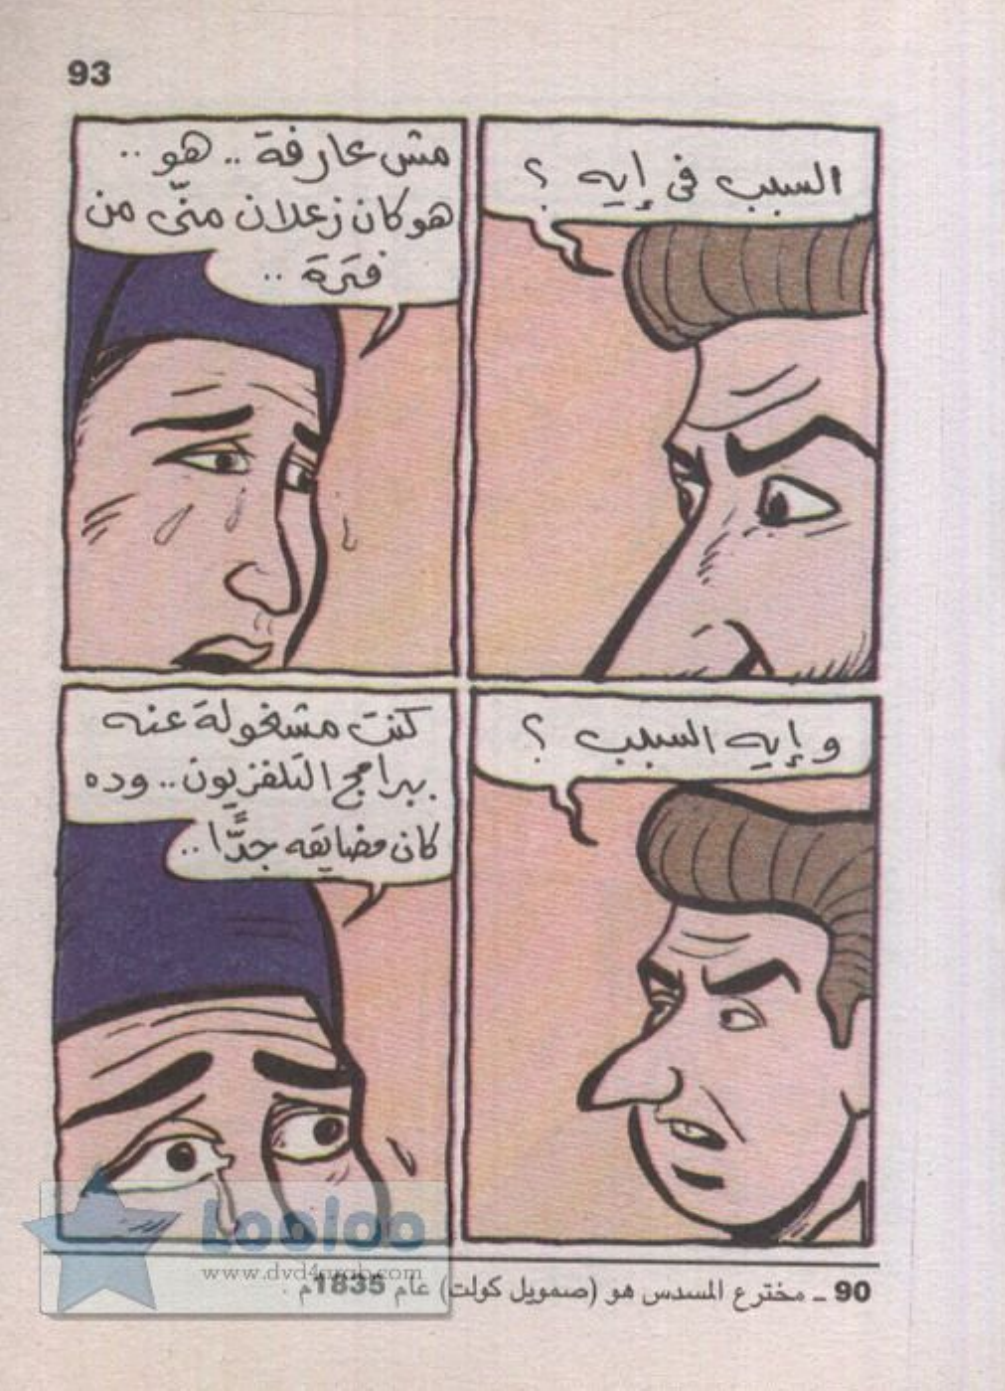 93
السبب فى إيه ؟
مش عارفة .. هو ..
هو كان زعلان منّى من
فترة ..
و إيه السبب ؟
كنت مشغولة عنه
ببرامج التلفزيون .. وده
كان مضايقه جدًّا ..
90 ـ مخترع المسدس هو (صمويل كولت) عام 1835م .
Looloo
www.dvd4arab.com